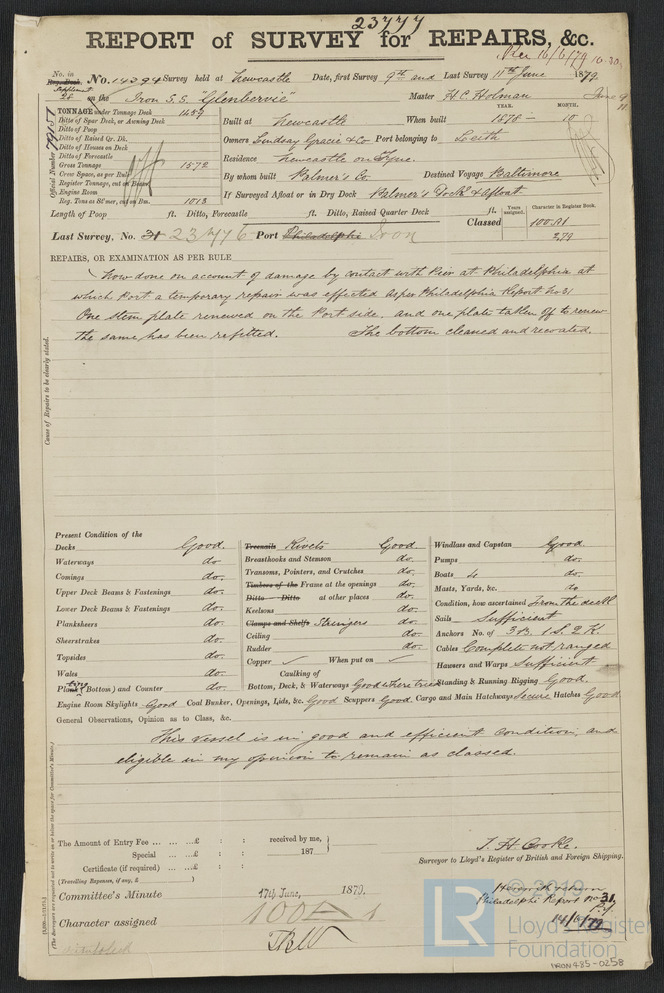 23777
REPORT of SURVEY for REPAIRS, &c.
Rec 16/6/79 10.30
No. in Reg. Book. Supplement 28 No. 14394 Survey held at Newcastle Date, first Survey 9th and Last Survey 11th June 1879.
on the Iron S.S. "Glenbervie" Master H.C. Holman
TONNAGE under Tonnage Deck 1459
Ditto of Spar Deck, or Awning Deck
Ditto of Poop
Ditto of Raised Qr. Dk.
Ditto of Houses on Deck
Ditto of Forecastle
Gross Tonnage 1572
Crew Space, as per Rule
Register Tonnage, cut on Beam
Engine Room
Reg. Tons as 86 mer, cut on Bm. 1013
Official Number 79157
YEAR. MONTH.
Built at Newcastle When built 1878 - 10
Owners Lindsay Gracie & Co Port belonging to Leith
Residence Newcastle on Tyne.
By whom built Palmer's Co. Destined Voyage Baltimore
If Surveyed Afloat or in Dry Dock Palmer's Dock & afloat.
Length of Poop ft. Ditto, Forecastle ft. Ditto, Raised Quarter Deck ft.
Years assigned. Character in Register Book.
Classed 100 A1
2,79
Last Survey, No. 31 23776 Port Philadelphia Iron
REPAIRS, OR EXAMINATION AS PER RULE
Now done on account of damage by contact with Pier at Philadelphia at
which Port a temporary repair was effected as per Philadelphia Report No 31
One stem plate renewed on the Port side. and one plate taken off to renew
the same has been refitted. The bottom cleaned and recoated.
Cause of Repairs to be clearly stated.
Present Condition of the
Decks Good.
Waterways do.
Comings do.
Upper Deck Beams & Fastenings do.
Lower Deck Beams & Fastenings do.
Planksheers do.
Sheerstrakes do.
Topsides do.
Wales do.
Plank (Bottom) and Counter do.
Treenails Rivets Good.
Breasthooks and Stemson do.
Transoms, Pointers, and Crutches do.
Timbers of the Frame at the openings do.
Ditto Ditto at other places do.
Keelsons do.
Clamps and Shelfs Stringers do.
Ceiling do.
Rudder do.
Copper ✓ When put on ✓
Caulking of
Bottom, Deck, & Waterways Good where tried
Windlass and Capstan Good
Pumps do.
Boats 4 do.
Masts, Yards, &c. do
Condition, how ascertained From the deck
Sails Sufficient
Anchors No. of 3 B. 1 S. 2 K.
Cables Complete not ranged
Hawsers and Warps Sufficient
Standing & Running Rigging Good.
Engine Room Skylights Good Coal Bunker, Openings, Lids, &c. Good Scuppers Good Cargo and Main Hatchways Secure Hatches Good
General Observations, Opinion as to Class, &c.
This vessel is in good and efficient condition, and
eligible in my opinion to remain as classed.
The Amount of Entry Fee ... ... ...£ : : received by me,
Special ... ...£ : : 187
Certificate (if required) ... ...£ : :
(Travelling Expenses, if any, £ )
T. H. Cooke.
Surveyor to Lloyd's Register of British and Foreign Shipping.
Committee's Minute 17th June, 1879.
Character assigned 100 A 1
Philadelphia Report no 31.
14/6/79
© 2019
LR
Lloyd's Register
Foundation
IRON485-0258